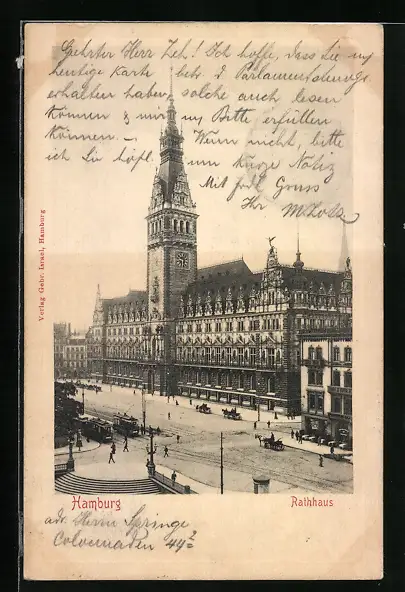 Geehrter Herr Zeh! Ich hoffe, dass Sie m/
heutige Karte betr. d Parlamentsbeweg.
erhalten haben, solche auch lesen
können & mir m/ Bitte erfüllen
können. – Wenn nicht, bitte
ich Sie höfl. um kurze Notiz
Mit frdl. Gruss
Ihr
Verlag Gebr. Israel, Hamburg
Hamburg Rathhaus
adr. Herrn Springe
Colonnaden 49²